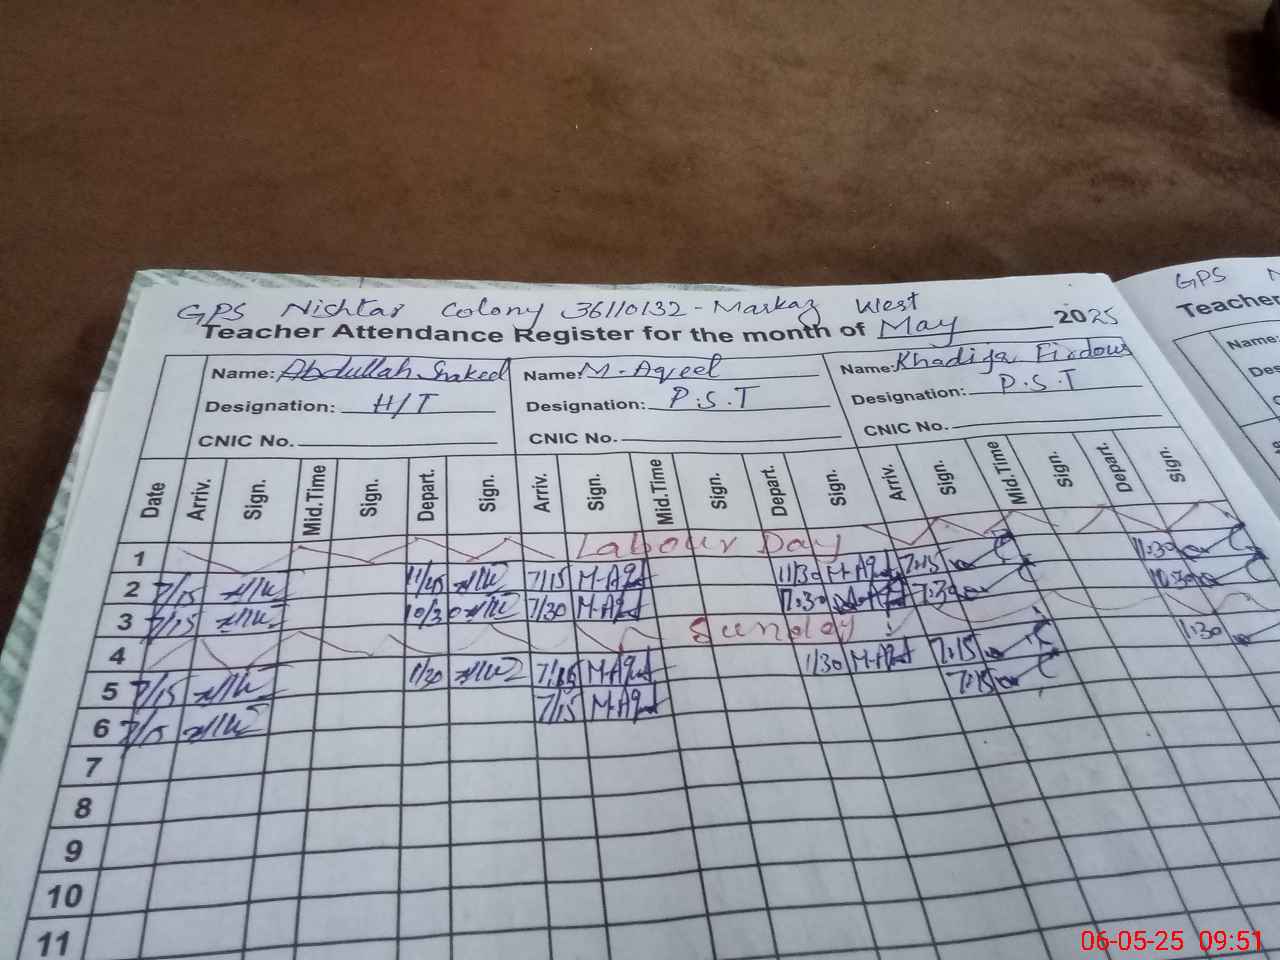 GPS Nishtar Colony 36110132-Markaz West
GPS N
Teacher Attendance Register for the month of May 2025
Teacher
Name: Abdullah Shakeel Name: M-Aqeel Name: Khadija Firdous
Name:
Designation: H/T Designation: P.S.T Designation: P.S.T
Des
CNIC No. CNIC No. CNIC No.
Date Arriv. Sign. Mid.Time Sign. Depart. Sign. Arriv. Sign. Mid.Time Sign. Depart. Sign. Arriv. Sign. Mid.Time Sign. Depart. Sign.
1 Labour Day
2 7/15 11/45 7/15 M-Aqeel 11/30 M-Aqeel 7:15 11:30
3 7/15 10/30 7/30 M-Aqeel 7:30 10:30
4 Sunday
5 7/15 1/30 7/15 M-Aqeel 1/30 M-Aqeel 7:15 1:30
6 7/15 7/15 M-Aqeel 7:15
7
8
9
10
11
06-05-25 09:51